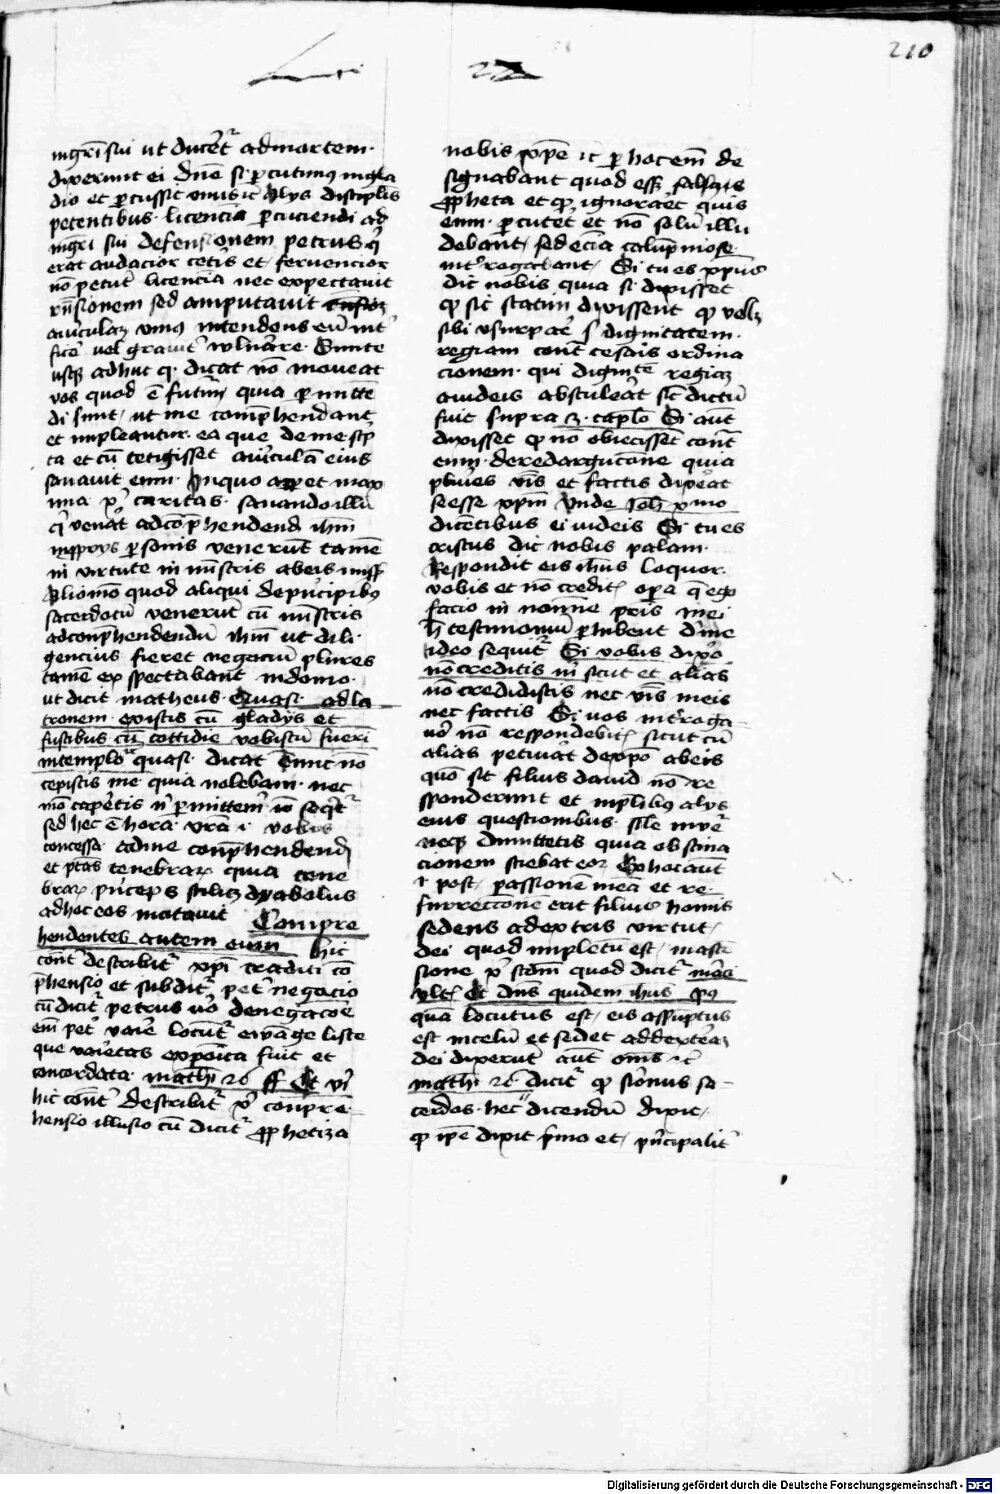 210
Luce 22
mgr̄i sui ut ducet̄ ad mortem·
dixerunt ei dn̄e si percutimus in gla
dio et percussit unus et alijs discipulis
petentibus· licenciā percuciendi ad
mgr̄i sui defensionem petrus q̄
erat audacior ceteris et fervencior
nō petiit licenciā nec expectavit
rn̄sionem sed amputavit
auriculaȝ unius intendens eū int̄
ficere vel graviter wlnerare· Sinite
usqȝ adhuc q· dicat nō moveat
vos quod ē futurū quia permitte
di sunt ut me comp̄hendant
et impleantur· ea que de me scp̄
ta et cū tetigisset auriculā eius
sanavit eum· In quo apparet max
ima xp̄i caritas· sanando illū
q̄ venerat ad comp̄hendend ihm̄
in propriis personis venerūt tamē
in virtute in ministris ab eis missis
Alio modo quod aliqui de principibus
sacerdotū venerūt cū ministris
ad comp̄hendendū ihm̄ ut dili
gencius fieret negociū plures
tamē expectabant in domo·
ut dicit matheus· Quasi ad la
tronem existis cū gladijs et
fustibus cū cottidie vobiscū fuerī
in templo quasi dicat tunc nō
cepistis me quia nolebam· nec
modo caperetis nisi permitterem iō seqr̄
sed hec ē hora· vrā i vobis
concessa· ad me comp̄hendendū
et ptās tenebraꝝ quia tene
braꝝ princeps scilicȝ dyabolus
ad hoc eos incitavit Compre
hendentes autem eum hic
cont̄ describitur xpī traditi cō
p̄hensio et subditur petri negacio
cū dicit̄ petrus vō de negacōe
em̄ petri varie locunt̄ ewāgeliste
que varietas exposita fuit et
concordata· mathi 26 ff Et viri
hic cont̄ describit̄ xp̄i conpre
hensio illusio cū dicit̄ prophetiza
nobis xp̄e ic per hoc em̄ de
signabant quod esset falsus
propheta et qȝ ignoraret quis
eum· percuteret et nō solū illu
debant, sed eciā calūpniose
int̄rogabant, Si tu es xpūs
dic nobis quia si dixisset
qȝ sic statim dixissent qȝ vellȝ
sibi usurpare dignitatem·
regiam cont̄ cesaris ordina
cionem· qui dignitatē regiaȝ
a iudeis abstulerat sic̄ dictū
fuit supra 2· caplō Si aut̄
dixisset qȝ nō obiecissēt cont̄
eum· de redargucione quia
plures verbis et factis dixerat
se esse xpm̄ Unde Joh̄ xmo
dicentibus ei iudeis Si tu es
cristus dic nobis palam·
Respondit eis ih̄us loquor·
vobis et nō creditis opera q̄ ego
facio in nomine pris mei
h̄ testimoniū perhibent de me
ideo sequit̄ Si vobis dixero
nō creditis m̄ sicut et alias
nō credidistis nec verbis meis
nec factis Si vos interroga
vero nō respondebitis sicut cū
alias petiverat de xpō ab eis
quō sit filius david nō re
sponderunt et in pluribus alijs
eius questionibus· sile inve
neqȝ dimittetis quia obstina
cionem sciebat eoꝝ Ex hoc aut̄
i post, passionē meā et re·
surrectionē erit filius hominis
sedens a dextris virtutis
dei quod impletū est, in asce
sione xp̄i scdm̄ quod dicit̄ marci
ult̄ Et dn̄s quidem ihus postquā
quā locutus est, eis assūptus
est in celū et sedet ad dexteraȝ
dei dixerūt aut̄ om̄s ic̄
mathi 26· dicit̄ qȝ summus sa-
cerdos· hec dicendū dixit,
qȝ ipē dixit primo et, principalit̄
Digitalisierung gefördert durch die Deutsche Forschungsgemeinschaft - DFG